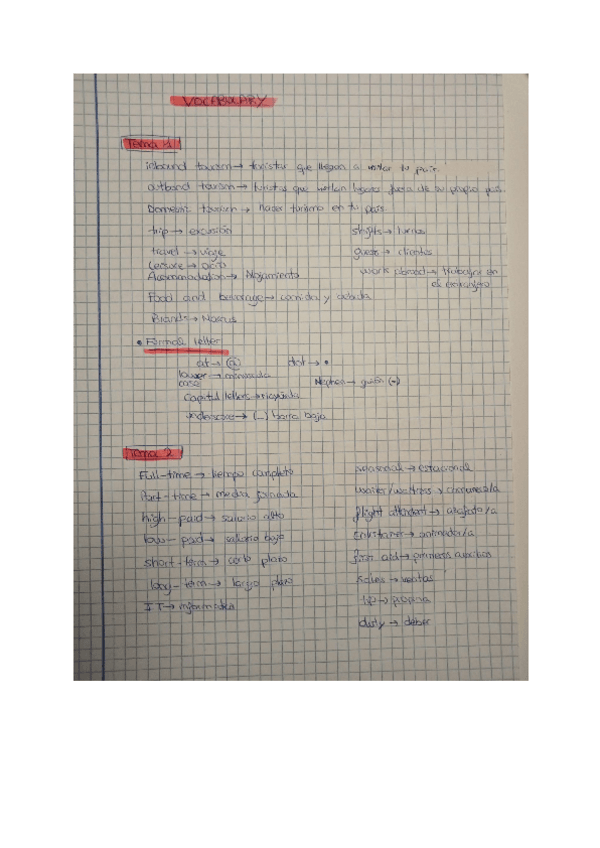 VOCABULARY
Tema 1
inbound tourism → turistas que llegan a visitar tu país.
outbond tourism → turistas que fuera de su propio país.
Domestic tourism → hacer turismo en tu país
trip → excursión
shifts → turnos
travel → viaje
guests → clientes
Leisure → ocio
Accommodation → Alojamiento
work abroad → trabajar en
el extranjero
Food and beverage → comida y bebida
Brands → Marcas
• Formal letter
at → @
dot → •
lower → minúscula
case
Hyphen → guión (-)
capital letters → mayúscula
underscore → (_) barra baja
Tema 2
Full-time → tiempo completo
seasonal → estacional
Part-time → media jornada
waiter/waitress → camarero/a
high-paid → salario alto
flight attendant → azafato/a
low-paid → salario bajo
entertainer → animador/a
short-term → corto plazo
first aid → primeros auxilios
long-term → largo plazo
sales → ventas
IT → informática
tip → propina
duty → deber